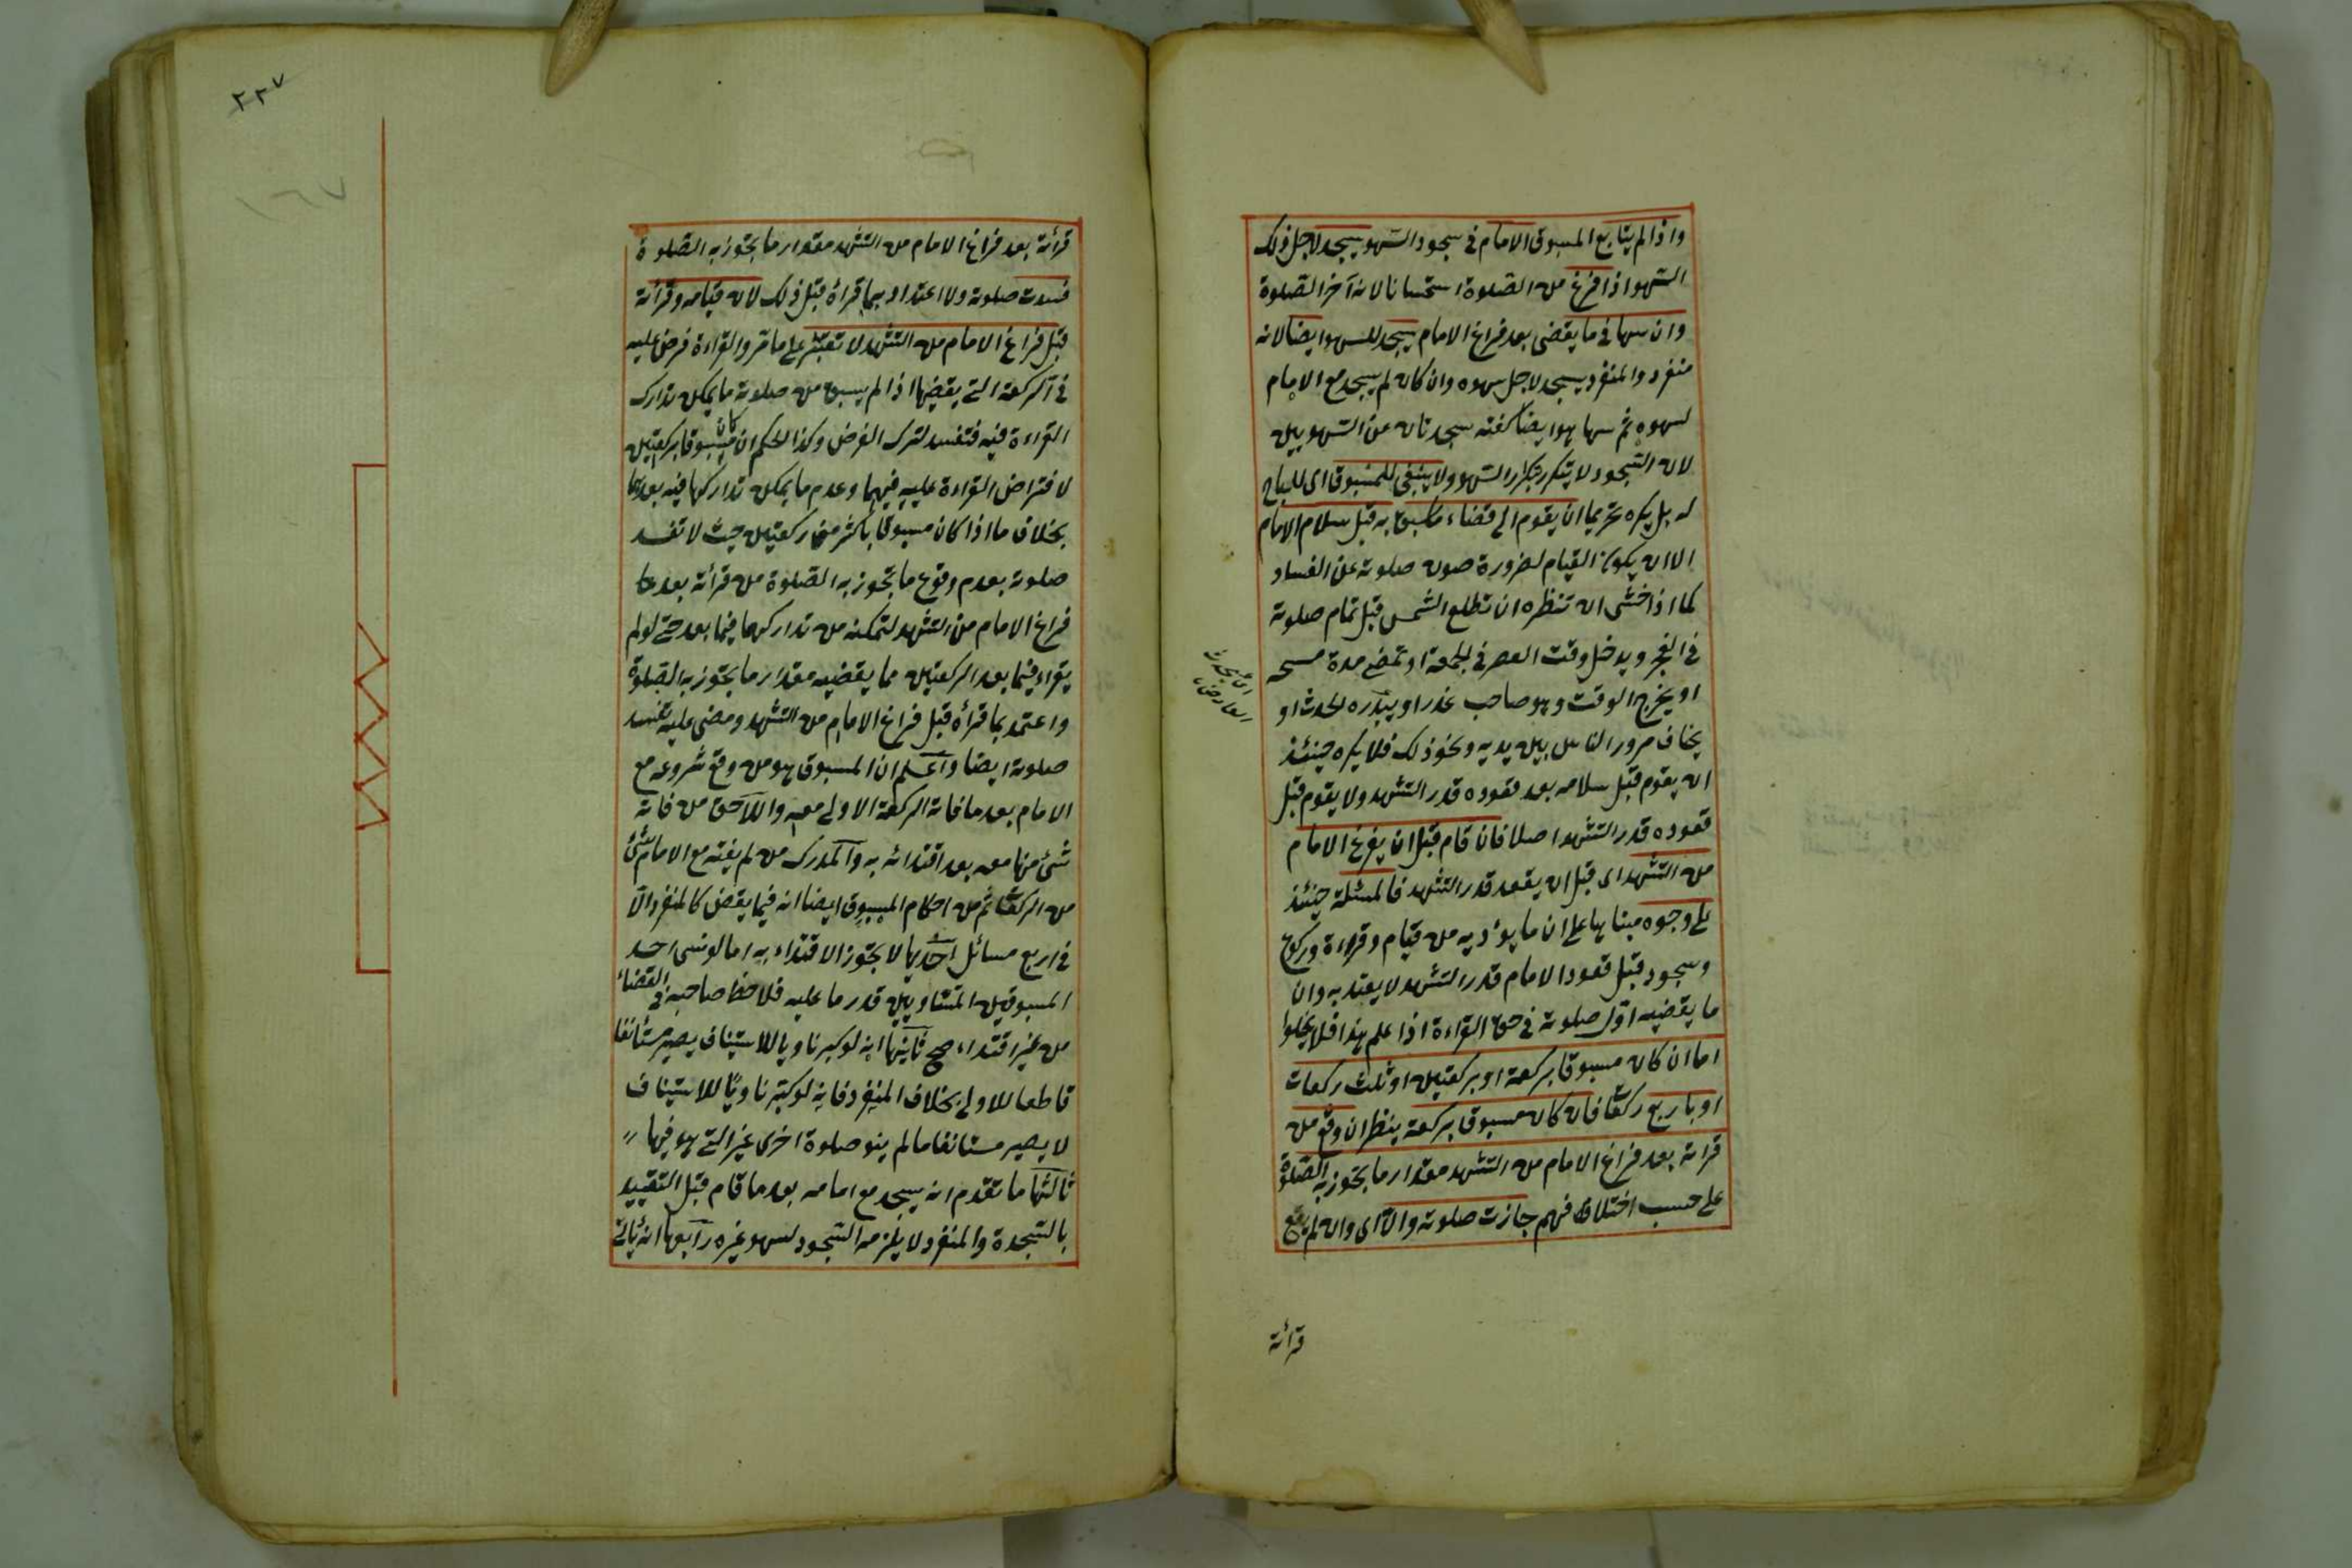 واذا لم يتابع المسبوق الامام في سجود السهو يسجد لاجل ذلك
السهو اذا فرغ من الصلوة استحسانا لانه آخر الصلوة
وان سها في ما يقضى بعد فراغ الامام يسجد للسهو ايضا لانه
منفرد والمنفرد يسجد لاجل سهوه وان كان لم يسجد مع الامام
لسهوه ثم سها هو ايضا كفته سجدتان عن السهويين
لان السجود لا يتكرر بتكرار السهو ولا ينبغي للمسبوق اى لا يباح
له بل يكره تحريما ان يقوم الى قضاء ما سبق به قبل سلام الامام
الا ان يكون القيام لضرورة صون صلوته عن الفساد
كما اذا خشى ان تنظره ان تطلع الشمس قبل تمام صلوته
في الفجر ويدخل وقت العصر في الجمعة او تمضى مدة مسحه
او يخرج الوقت وهو صاحب عذر او يبتدره الحدث او
يخاف مرور الناس بين يديه ونحو ذلك فلا يكره حينئذ
ان يقوم قبل سلامه بعد قعوده قدر التشهد ولا يقوم قبل
قعوده قدر التشهد اصلا فان قام قبل ان يفرغ الامام
من التشهد اى قبل ان يقعد قدر التشهد فالمسئلة حينئذ
على وجوه مبناها على ان ما يؤديه من قيام وقراءة وركوع
وسجود قبل قعود الامام قدر التشهد لا يعتد به وان
ما يقضيه اول صلوته في حق القراءة اذا علم هذا فلا يخلوا
اما ان كان مسبوقا بركعة او بركعتين او ثلث ركعات
او باربع ركعات فان كان مسبوقا بركعة ينظر ان وقع من
قرائته بعد فراغ الامام من التشهد مقدار ما يجوز به الصلوة
على حسب اختلافهم جازت صلوته والا اى وان لم يقع
قرائته
٢٢٧
١٦٧
قرائته بعد فراغ الامام من التشهد مقدار ما يجوز به الصلوة
فسدت صلوته ولا اعتداد بما قراه قبل ذلك لان قيامه وقرائته
قبل فراغ الامام من التشهد لا تعتبر على ما مر والقراءة فرض عليه
في الركعة التي يقضيها اذا لم يسبق من صلوته ما يمكن تدارك
القراءة فيه فتفسد لترك الفرض وكذا الحكم ان كان مسبوقا بركعتين
لافتراض القراءة عليه فيهما وعدم ما يمكن تداركها فيه بعدهما
بخلاف ما اذا كان مسبوقا باكثر من ركعتين حيث لا تفسد
صلوته بعدم وقوع ما تجوز به الصلوة من قرائته بعد
فراغ الامام من التشهد لتمكنه من تداركها فيما بعد حتى لو لم
يقراء فيما بعد الركعتين مما يقضيه مقدار ما يجوز به الصلوة
واعتمد بما قرأه قبل فراغ الامام من التشهد ومضى عليه تفسد
صلوته ايضا واعلم ان المسبوق هو من وقع شروعه مع
الامام بعد ما فاته الركعة الاولى معه واللاحق من فاته
شئ منها معه بعد اقتدائه به والمدرك من لم يفته مع الامام شئ
من الركعات ثم من احكام المسبوق ايضا انه فيما يقضى كالمنفرد الا
في اربع مسائل احديها لا يجوز الاقتداء به اما لو نسى احد
المسبوقين المتساويين قدر ما عليه فلاحظ صاحبه في القضاء
من غير اقتداء صح ثانيها انه لو كبر ناويا للاستيناف يصير مستأنفا
قاطعا للاولى بخلاف المنفرد فانه لو كبر ناويا للاستيناف
لا يصير مستانفا ما لم ينو صلوة اخرى غير التي هو فيها
ثالثها ما تقدم انه يسجد مع امامه بعد ما قام قبل التقييد
بالسجدة والمنفرد لا يلزمه السجود لسهو غيره رابعها انه ياتى